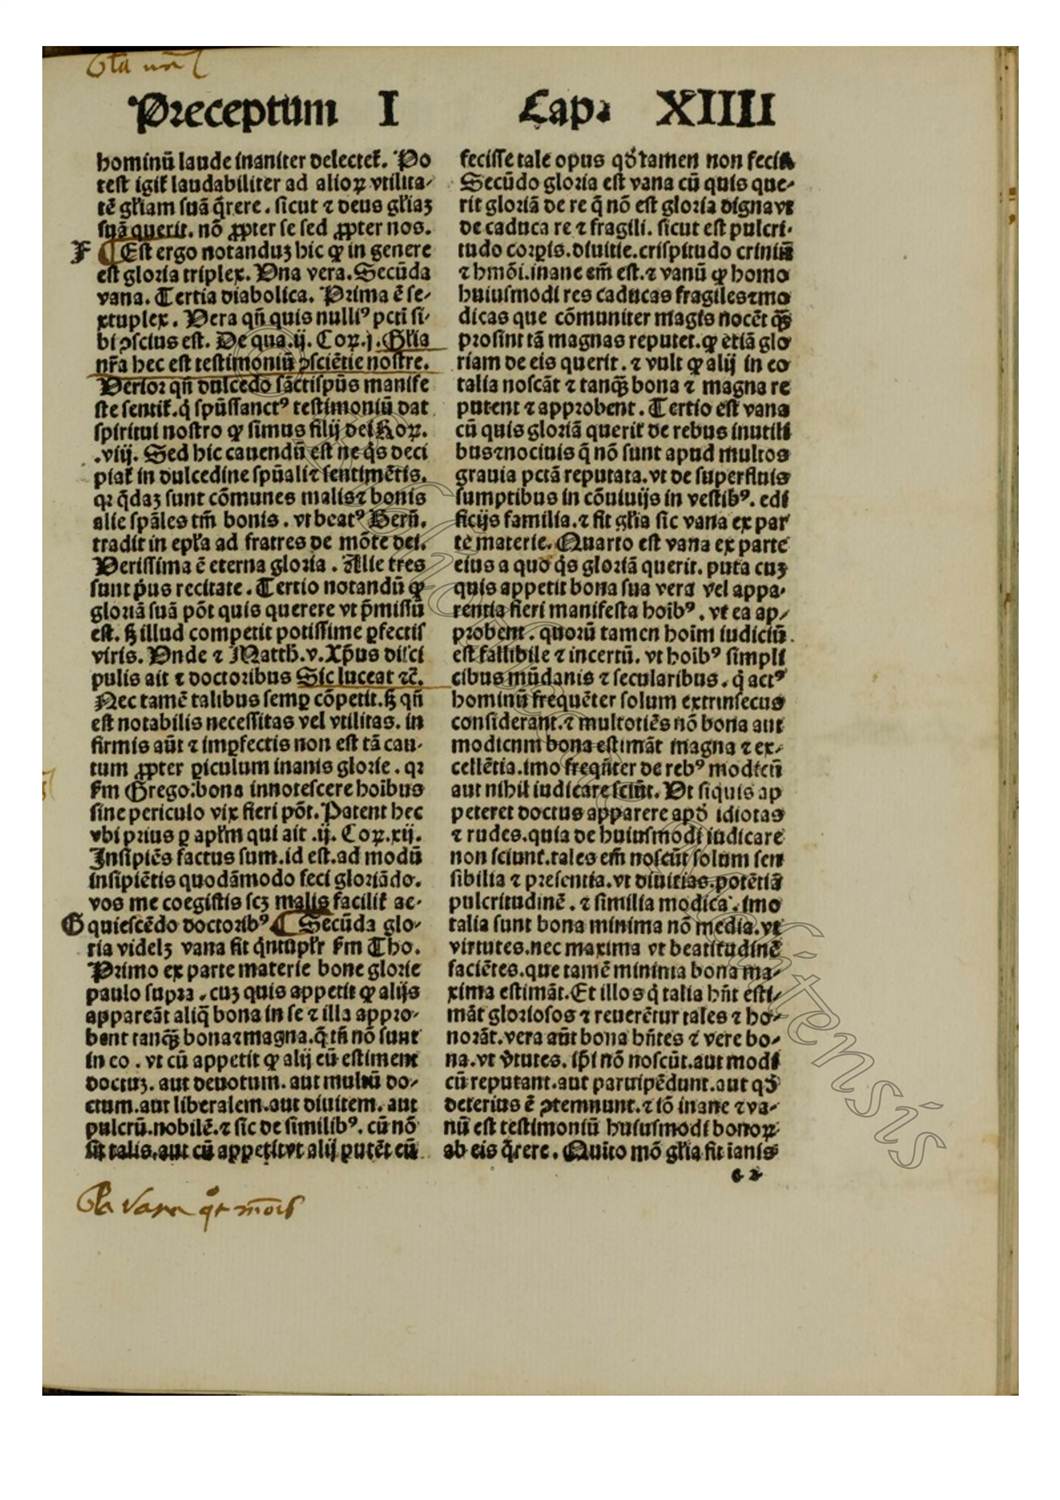 Gl̃a nr̃a
Preceptum I Cap. XIIII
hominū laude inaniter delectet᷑. Po
test igit᷑ laudabiliter ad alioꝝ vtilita-
tē gl̃iam suā q̄rere. sicut ⁊ deus gl̃iaꝫ
suā querit. nō ꝓpter se sed ꝓpter nos.
F ¶ Est ergo notanduꝫ hic ꝙ in genere
est gloria triplex. Una vera. Secūda
vana. Tertia diabolica. Prima ē se-
xtuplex. Vera qn̄ quis nulliꝰ pctī si-
bi ꝯscius est. De qua .ij. Coꝝ. j. Gl̃ia
nr̃a hec est testimoniū ꝯsciētie nostre.
Verior qn̄ dulcedo sāctispūs manife
ste sentit᷑. q̇ spūssanctꝰ testimoniū dat
spiritui nostro ꝙ simus filij dei Roꝝ.
.viij. Sed hic cauendū est ne q̇s deci
piat᷑ in dulcedine spūali⁊ sentimētis.
qꝛ q̄daꝫ sunt cōmunes malis⁊ bonis
alie spāles tm̄ bonis. vt beatꝰ Bern̄.
tradit in epl̃a ad fratres de mōte dei.
Verissima ē eterna gloria. Alie tres
sunt p̄us recitate. Tertio notandū ꝙ
gloriā suā pōt quis querere vt p̄missū
est. ꝫ illud competit potissime ꝑfectis
viris. Unde ⁊ Matth. v. Xp̄us disci
pulis ait ⁊ doctoribus Sic luceat ⁊c̄.
Nec tamē talibus semꝑ cōpetit. ꝫ qn̄
est notabilis necessitas vel vtilitas. in
firmis aūt ⁊ imꝑfectis non est tā cau-
tum ꝓpter ꝑiculum inanis glorie. qꝛ
ẜm Grego. bona innotescere hoībus
sine periculo vix fieri pōt. Patent hec
vbi prius ꝑ apl̃m qui ait .ij. Coꝝ. xij.
Insipiēs factus sum. id est. ad modū
insipiētis quodāmodo feci gloriādo.
vos me coegistis scꝫ malis facilit᷑ ac-
G quiescēdo doctoribꝰ ¶ Secūda glo-
ria videlꝫ vana fit q̄ntupl̃r ẜm Tho.
Primo ex parte materie bone glorie
paulo supra. cuꝫ quis appetit ꝙ alijs
appareāt aliq̄ bona in se ⁊ illa appro-
bent tanqꝫ̄ bona⁊magna. q̄ tn̄ nō sunt
in eo. vt cū appetit ꝙ alij eū estiment
doctuꝫ. aut deuotum. aut multū do-
ctum. aut liberalem. aut diuitem. aut
pulcrū. nobilē. ⁊ sic de similibꝰ. cū nō
sit talis. aut cū appetit vt alij putēt eū
fecisse tale opus qd̄ tamen non fecit
Secūdo gloria est vana cū quis que-
rit gloriā de re q̄ nō est gloria digna vt
de caduca re ⁊ fragili. sicut est pulcri-
tudo corꝑis. diuitie. crispitudo criniū
⁊ hmōi. inane em̄ est. ⁊ vanū ꝙ homo
huiusmodi res caducas fragiles⁊mo
dicas que cōmuniter magis nocēt qꝫ̄
prosint tā magnas reputet. ꝙ etiā glo
riam de eis querit. ⁊ vult ꝙ alij in eo
talia noscāt ⁊ tanqꝫ̄ bona ⁊ magna re
putent ⁊ approbent. Tertio est vana
cū quis gloriā querit᷑ de rebus inutili
bus⁊nociuis q̄ nō sunt apud multos
grauia pctā reputata. vt de superfluis
sumptibus in cōuiuijs in vestibꝰ. edi
ficijs familia. ⁊ fit gl̃ia sic vana ex par
te materie. Quarto est vana ex parte
eius a quo q̇s gloriā querit. puta cuꝫ
quis appetit bona sua vera vel appa-
rentia fieri manifesta hoībꝰ. vt ea ap-
probent. quorū tamen hoīm iudiciū
est fallibile ⁊ incertū. vt hoībꝰ simpli
cibus mūdanis ⁊ secularibus. q̇ actꝰ
hominū frequēter solum extrinsecus
considerant. ⁊ multotiēs nō bona aut
modicum bona estimāt magna ⁊ ex-
cellētia. imo freqn̄ter de rebꝰ modicū
aut nihil iudicare sciūt. Ut si quis ap
peteret doctus apparere apd̄ idiotas
⁊ rudes. quia de huiusmodi iudicare
non sciunt. tales em̄ noscūt solum sen
sibilia ⁊ presentia. vt diuitias. potētiā
pulcritudinē. ⁊ similia modica. imo
talia sunt bona minima nō media. vt
virtutes. nec maxima vt beatitudinē
faciētes. que tamē minima bona ma-
xima estimāt. Et illos q̇ talia hn̄t esti-
māt gloriosos ⁊ reuerētur tales ⁊ ho-
norāt. vera aūt bona hn̄tes ⁊ vere bo-
na. vt v̄tutes. ip̄i nō noscūt. aut modi
cū reputant. aut paruipēdunt. aut qd̄
deterius ē ꝯtemnunt. ⁊ iō inane ⁊ va-
nū est testimoniū huiusmodi bonoꝝ
ab eis q̄rere. Quīto mō gl̃ia fit inanis
e 2
Gl̃a vana